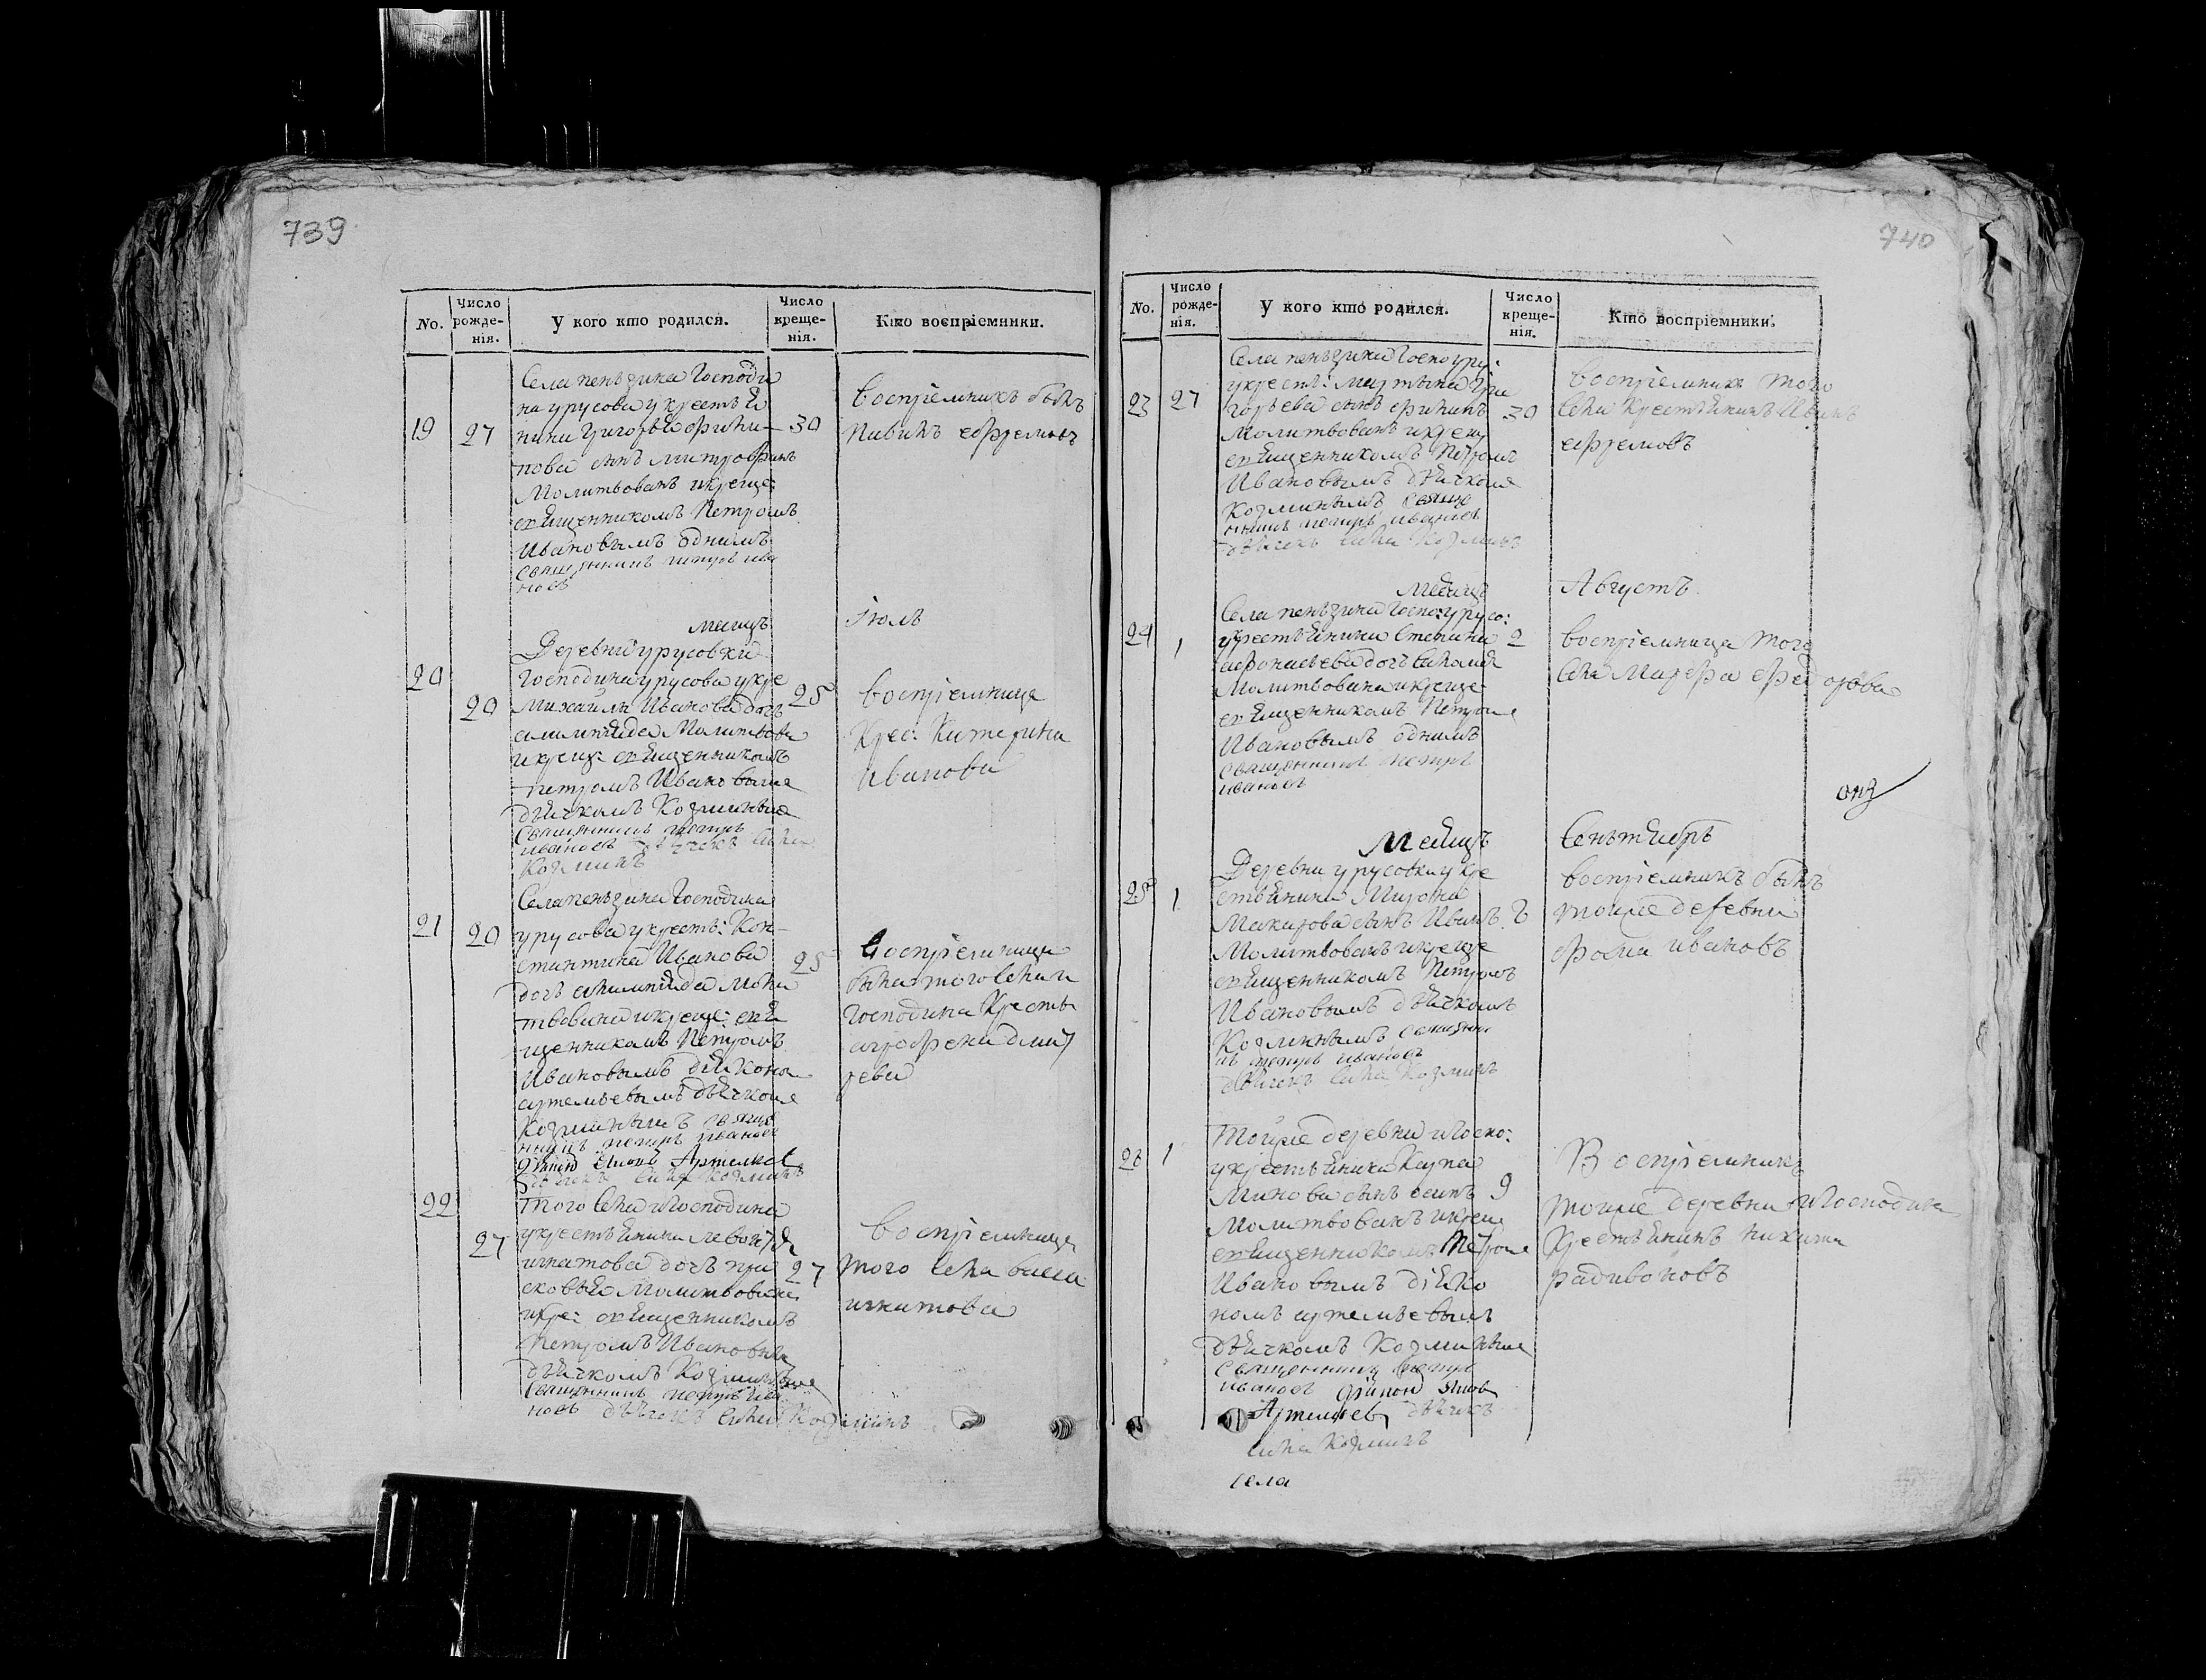 739
No.
Число рожде-нія.
У кого кто родился.
Число креще-нія.
Кто воспріемники.
19
27
Села пензина Господи
на урусова у крестья
нина Григорья Фили-
пова сынъ Митрофанъ
Молитвованъ и креще:
священникомъ Петромъ
Ивановымъ однимъ
священникъ петръ ива
новъ
30
воспріемникъ былъ
ефремовъ
месяцъ
Іюль
20
20
Деревни урусовки
Господина урусова у кре
Михайлы Иванова дочь
Молитвова
и крещ: священникомъ
петромъ Ивановыме
дьячкомъ Козминыме
Священникъ петръ
ивановъ дьячекъ
Козминъ
25
воспріемница
Крес: Катерина
иванова
21
20
Села пензина Господина
урусова у крестъ: Кон-
стантина Иванова
дочь моли
твована и креще: свя
щенникомъ Петромъ
Ивановымъ діякона
артемьевымъ дьячкоме
Козминымъ свяще
нникъ петръ ивановъ
діяконъ Артемьев
дьячекъ Козминъ
25
Воспріемница
была того села и
Господина Кресть
дмит
рева
22
27
Того села и Господина
у крестьянина
игнатова дочь пра
сковья Молитвована
и кре: священникомъ
Петромъ Ивановым
дьячкомъ Козминыме
Священникъ петръ ива
новъ дьячекъ Козминъ
27
воспріемница
того села
игнатова
740
No.
Число рожде-нія.
У кого кто родился.
Число креще-нія.
Кто воспріемники.
23
27
Села пензина Госпо уру:
у крест: Мартына Гри
горьева сынъ
Молитвованъ и крещ
священникомъ Петромъ
Ивановымъ дьячкоме
Козминымъ свяще
нникъ петръ ивановъ
дьячекъ Козминъ
30
воспріемникъ того
села крестьянинъ Иванъ
ефремовъ
месяцъ
Августъ
24
1
Села пензина Госпо: урусо:
у крестьянина Степана
афонасьева дочь
Молитвована и креще
священникомъ Петроме
Ивановымъ однимъ
священникъ петръ
ивановъ
2
воспріемница того
села Марфа федорова
Месяцъ
Сентябрь
25
1
Деревни урусовки у кре
стьянина Мирона
Макарова сынъ Иванъ
Молитвованъ и креще
священникомъ Петромъ
Ивановымъ дьячкомъ
Козминымъ священни
къ петръ ивановъ
дьячекъ Козминъ
воспріемникъ былъ
тоиже деревни
фома ивановъ
1
Тойже деревни и Госпо:
у крестьянина Карпа
Минова сынъ осипъ
Молитвованъ и крещ
священникомъ Петроме
Ивановымъ діяко
номъ артемьевымъ
дьячкомъ Козминыме
Священникъ петръ
ивановъ діяконъ
Артемьевъ дьячекъ
Козминъ
села
9
Воспріемникъ
тоиже деревни и Господина
Крестьянинъ никита
радивоновъ